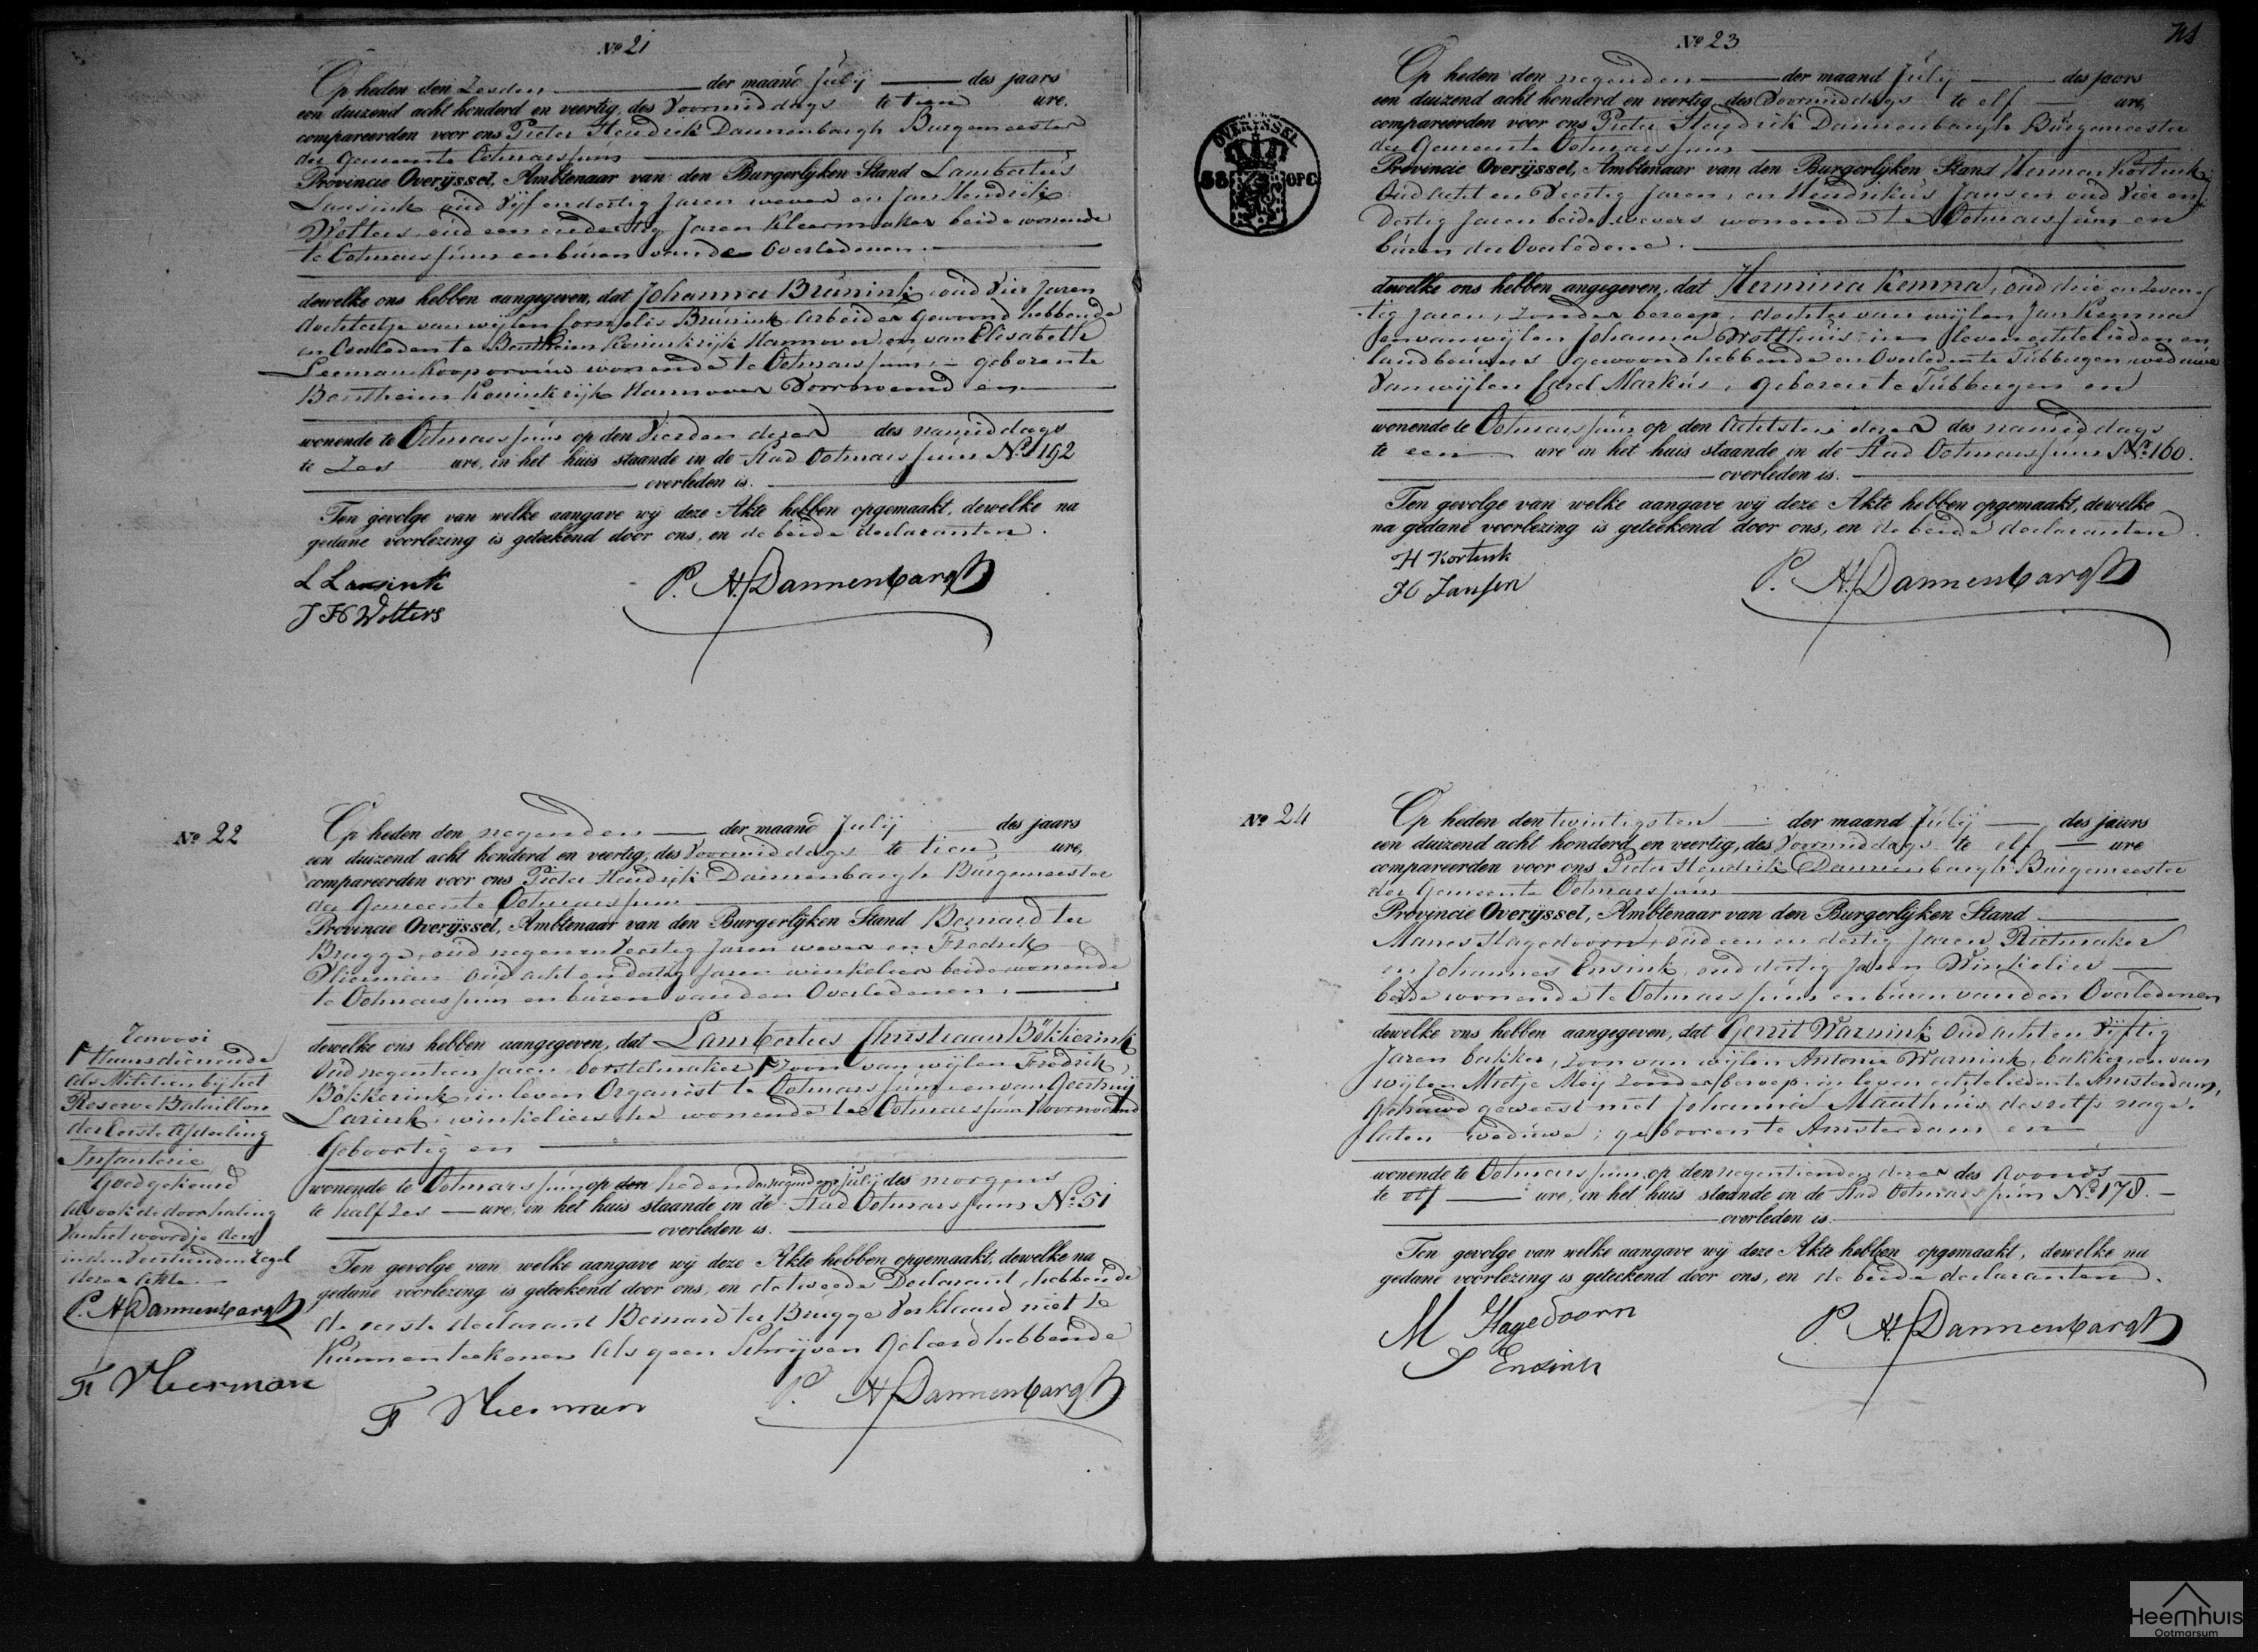 No 21
Op heden den Zesden der maand Julij des jaars
een duizend acht honderd en veertig, des Voormiddags te tien ure,
compareerden voor ons Pieter Hendrik Dannenbargh Burgemeester
der Gemeente Ootmarssum
Provincie Overijssel, Ambtenaar van den Burgerlijken Stand Lambertus
Lansink oud Vijf en dertig Jaren wever en Jan Hendrik
Wolters oud een en dertig Jaren Kleermaker beide wonende
te Ootmarssum en buren van de Overledenen
dewelke ons hebben aangegeven, dat Johanna Brünink oud Vier Jaren
dochtertje van wijlen Cornelis Brünink Arbeider gewoond hebbende
en Overleden te Bentheim Koninkrijk Hannover en van Elisabeth
Leeman Koopvrouw wonende te Ootmarssum geboren te
Bentheim Koninkrijk Hannover Voornoemd en
wonende te Ootmarssum op den Vierden dezer des namiddags
te Zes ure, in het huis staande in de Stad Ootmarssum No 192
overleden is.
Ten gevolge van welke aangave wij deze Akte hebben opgemaakt, dewelke na
gedane voorlezing is geteekend door ons, en de beide declaranten.
L Lansink
P. H. Dannenbargh
J H Wolters
No 22
Op heden den negenden der maand Julij des jaars
een duizend acht honderd en veertig, des Voormiddags te tien ure,
compareerden voor ons Pieter Hendrijk Dannenbargh Burgemeester
der Gemeente Ootmarssum
Provincie Overijssel, Ambtenaar van den Burgerlijken Stand Bernard ter
Brugge, oud negen en Veertig Jaren wever en Fredrik
Vleerman oud acht en dertig Jaren winkelier beide wonende
te Ootmarssum en buren van den Overledenen.
dewelke ons hebben aangegeven, dat Lambertus Christiaan Bökkerink
Oud negentien Jaren borstelmaker Zoon van wijlen Fredrik
Bökkerink in leven Organist te Ootmarssum en van Geertruij
Larink, winkelierster wonende te Ootmarssum Voornoemd
Geboortig en
wonende te Ootmarssum op den heden den negenden Julij des morgens
te half zes ure, in het huis staande in de Stad Ootmarssum No 51
overleden is.
Ten gevolge van welke aangave wij deze Akte hebben opgemaakt, dewelke na
gedane voorlezing is geteekend door ons, en de tweede Declarant, hebbende
de eerste declarant Bernard ter Brugge Verklaard niet te
Kunnen teekenen Als geen Schrijven Geleerd hebbende
F Vleerman
P. H. Dannenbargh
Renvooi
Thans dienende
als Milicien bij het
Reserve Bataillon
der Eerste Afdeeling
Infanterie
Goedgekeurd
Als ook de doorhaling
Van het woordje den
in den Veertienden regel
dezer Akte.
P. H. Dannenbargh
F Vleerman
No 23
Op heden den negenden der maand Julij des jaars
een duizend acht honderd en veertig, des Voormiddags te elf ure,
compareerden voor ons Pieter Hendrik Dannenbargh Burgemeester
der Gemeente Ootmarssum
Provincie Overijssel, Ambtenaar van den Burgerlijken Stand Herman Kortink
Oud Acht en Veertig Jaren, en Hendrikus Jansen oud Vier en
Dertig Jaren beide wevers wonende te Ootmarssum en
buren der Overledene.
dewelke ons hebben angegeven, dat Hermina Kemna, oud drie en Zeven-
tig Jaren, Zonder beroep, dochter van wijlen Jan Kemna
en van wijlen Johanna Wolthuis in leven echtelieden en
landbouwers gewoond hebbende en Overleden te Tubbergen weduwe
Van wijlen Card Markus, geboren te Tubbergen en
wonende te Ootmarssum op den Achtsten dezer des namiddags
te een ure in het huis staande in de Stad Ootmarssum No 160.
overleden is.
Ten gevolge van welke aangave wij deze Akte hebben opgemaakt, dewelke
na gedane voorlezing is geteekend door ons, en de beide declaranten.
H Kortink
P. H. Dannenbargh
H Jansen
OVERIJSSEL
38 OPC
No 24
Op heden den twintigsten der maand Julij des jaars
een duizend acht honderd en veertig, des Voormiddags te elf ure
compareerden voor ons Pieter Hendrik Dannenbargh Burgemeester
der Gemeente Ootmarssum
Provincie Overijssel, Ambtenaar van den Burgerlijken Stand
Manes Hagedoorn, oud een en dertig Jaren Rietmaker
en Johannes Ensink, oud dertig Jaren Winkelier
beide wonende te Ootmarssum en buren van den Overledenen
dewelke ons hebben aangegeven, dat Gerrit Warnink Oud acht en Vijftig
Jaren bakker, Zoon van wijlen Antonie Warnink, bakker en van
wijlen Mietje Moij Zonder beroep in leven echtelieden te Amsterdam,
Gehuwd geweest met Johanna Maathuis deszelfs nage-
laten weduwe; geboren te Amsterdam en
wonende te Ootmarssum op den negentienden dezer des Avonds
te elf ure, in het huis staande in de Stad Ootmarssum No 178.
overleden is.
Ten gevolge van welke aangave wij deze Akte hebben opgemaakt, dewelke na
gedane voorlezing is geteekend door ons, en de beide declaranten.
M Hagedoorn
P. H. Dannenbargh
J Ensink
Heemhuis
Ootmarsum